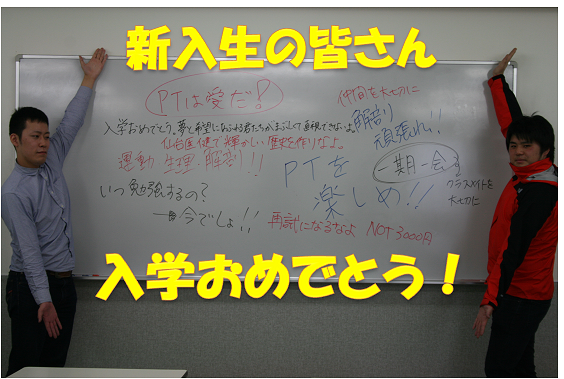 新入生の皆さん
PTは愛だ!
仲間を大切に
解剖り
頑張れ!!
入学おめでとう。夢と希望にあふれる君たちがまぶしくて直視できないよ。
仙台医健で輝かしい歴史を作りなよ。
運動 生理・解剖!!
PTを
楽しめ!!
一期一会
クラスメイトを
大切に
いつ勉強するの?
今でしょ!!
再試になるなよ NOT 3000円
入学おめでとう!